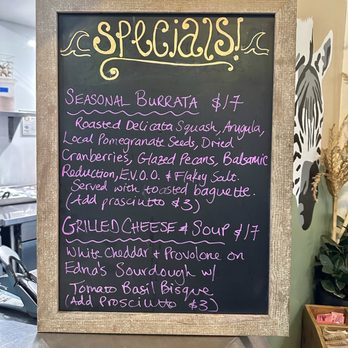 SPECIALS!
SEASONAL BURRATA $17
Roasted Delicata Squash, Arugula,
Local Pomegranate Seeds, Dried
Cranberries, Glazed Pecans, Balsamic
Reduction, E.V.O.O. & Flakey Salt.
Served with toasted baguette.
(Add prosciutto $3)
GRILLED CHEESE & Soup $17
White Cheddar & Provolone on
Edna's Sourdough w/
Tomato Basil Bisque
(Add Prosciutto $3)